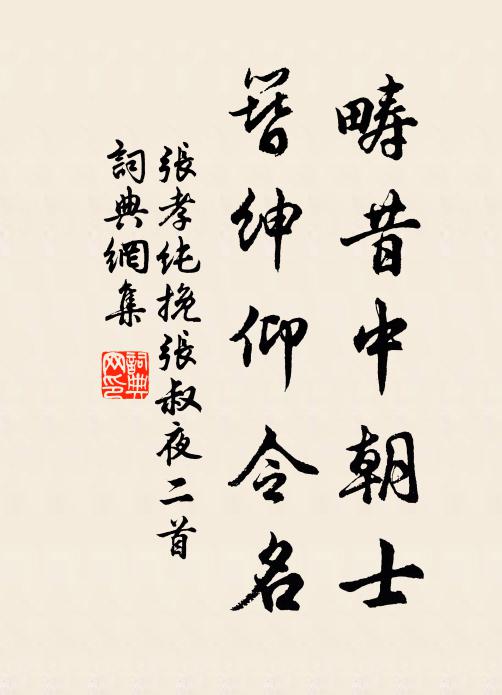 疇昔中朝士
簪紳仰令名
張孝純挽張叔夜二首
詞典網集
詞典
网印